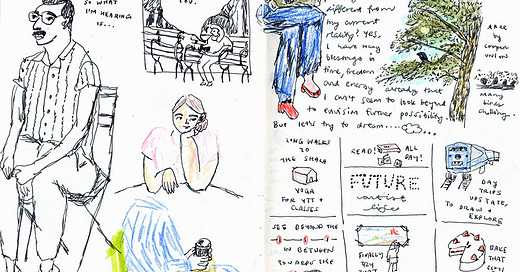 SO WHAT
I'M HEARING
IS...
YOU.
different from
my current
reality? Yes,
I have many
blessings in
time, freedom
and energy already that
I can't seem to look beyond
to envision further possibility.
But let's try to dream....
tree
by
cooper
union
many
birds
chilling.
LONG WALKS
TO
THE SHALA
YOGA
FOR YTT +
CLASSES
READ! ALL
DAY!
FUTURE
artist
life
DAY
TRIPS
UPSTATE,
TO DRAW +
EXPLORE
SEE BEYOND THE
IN BETWEEN
TOWARD THE
FINALLY
BAKE
THAT